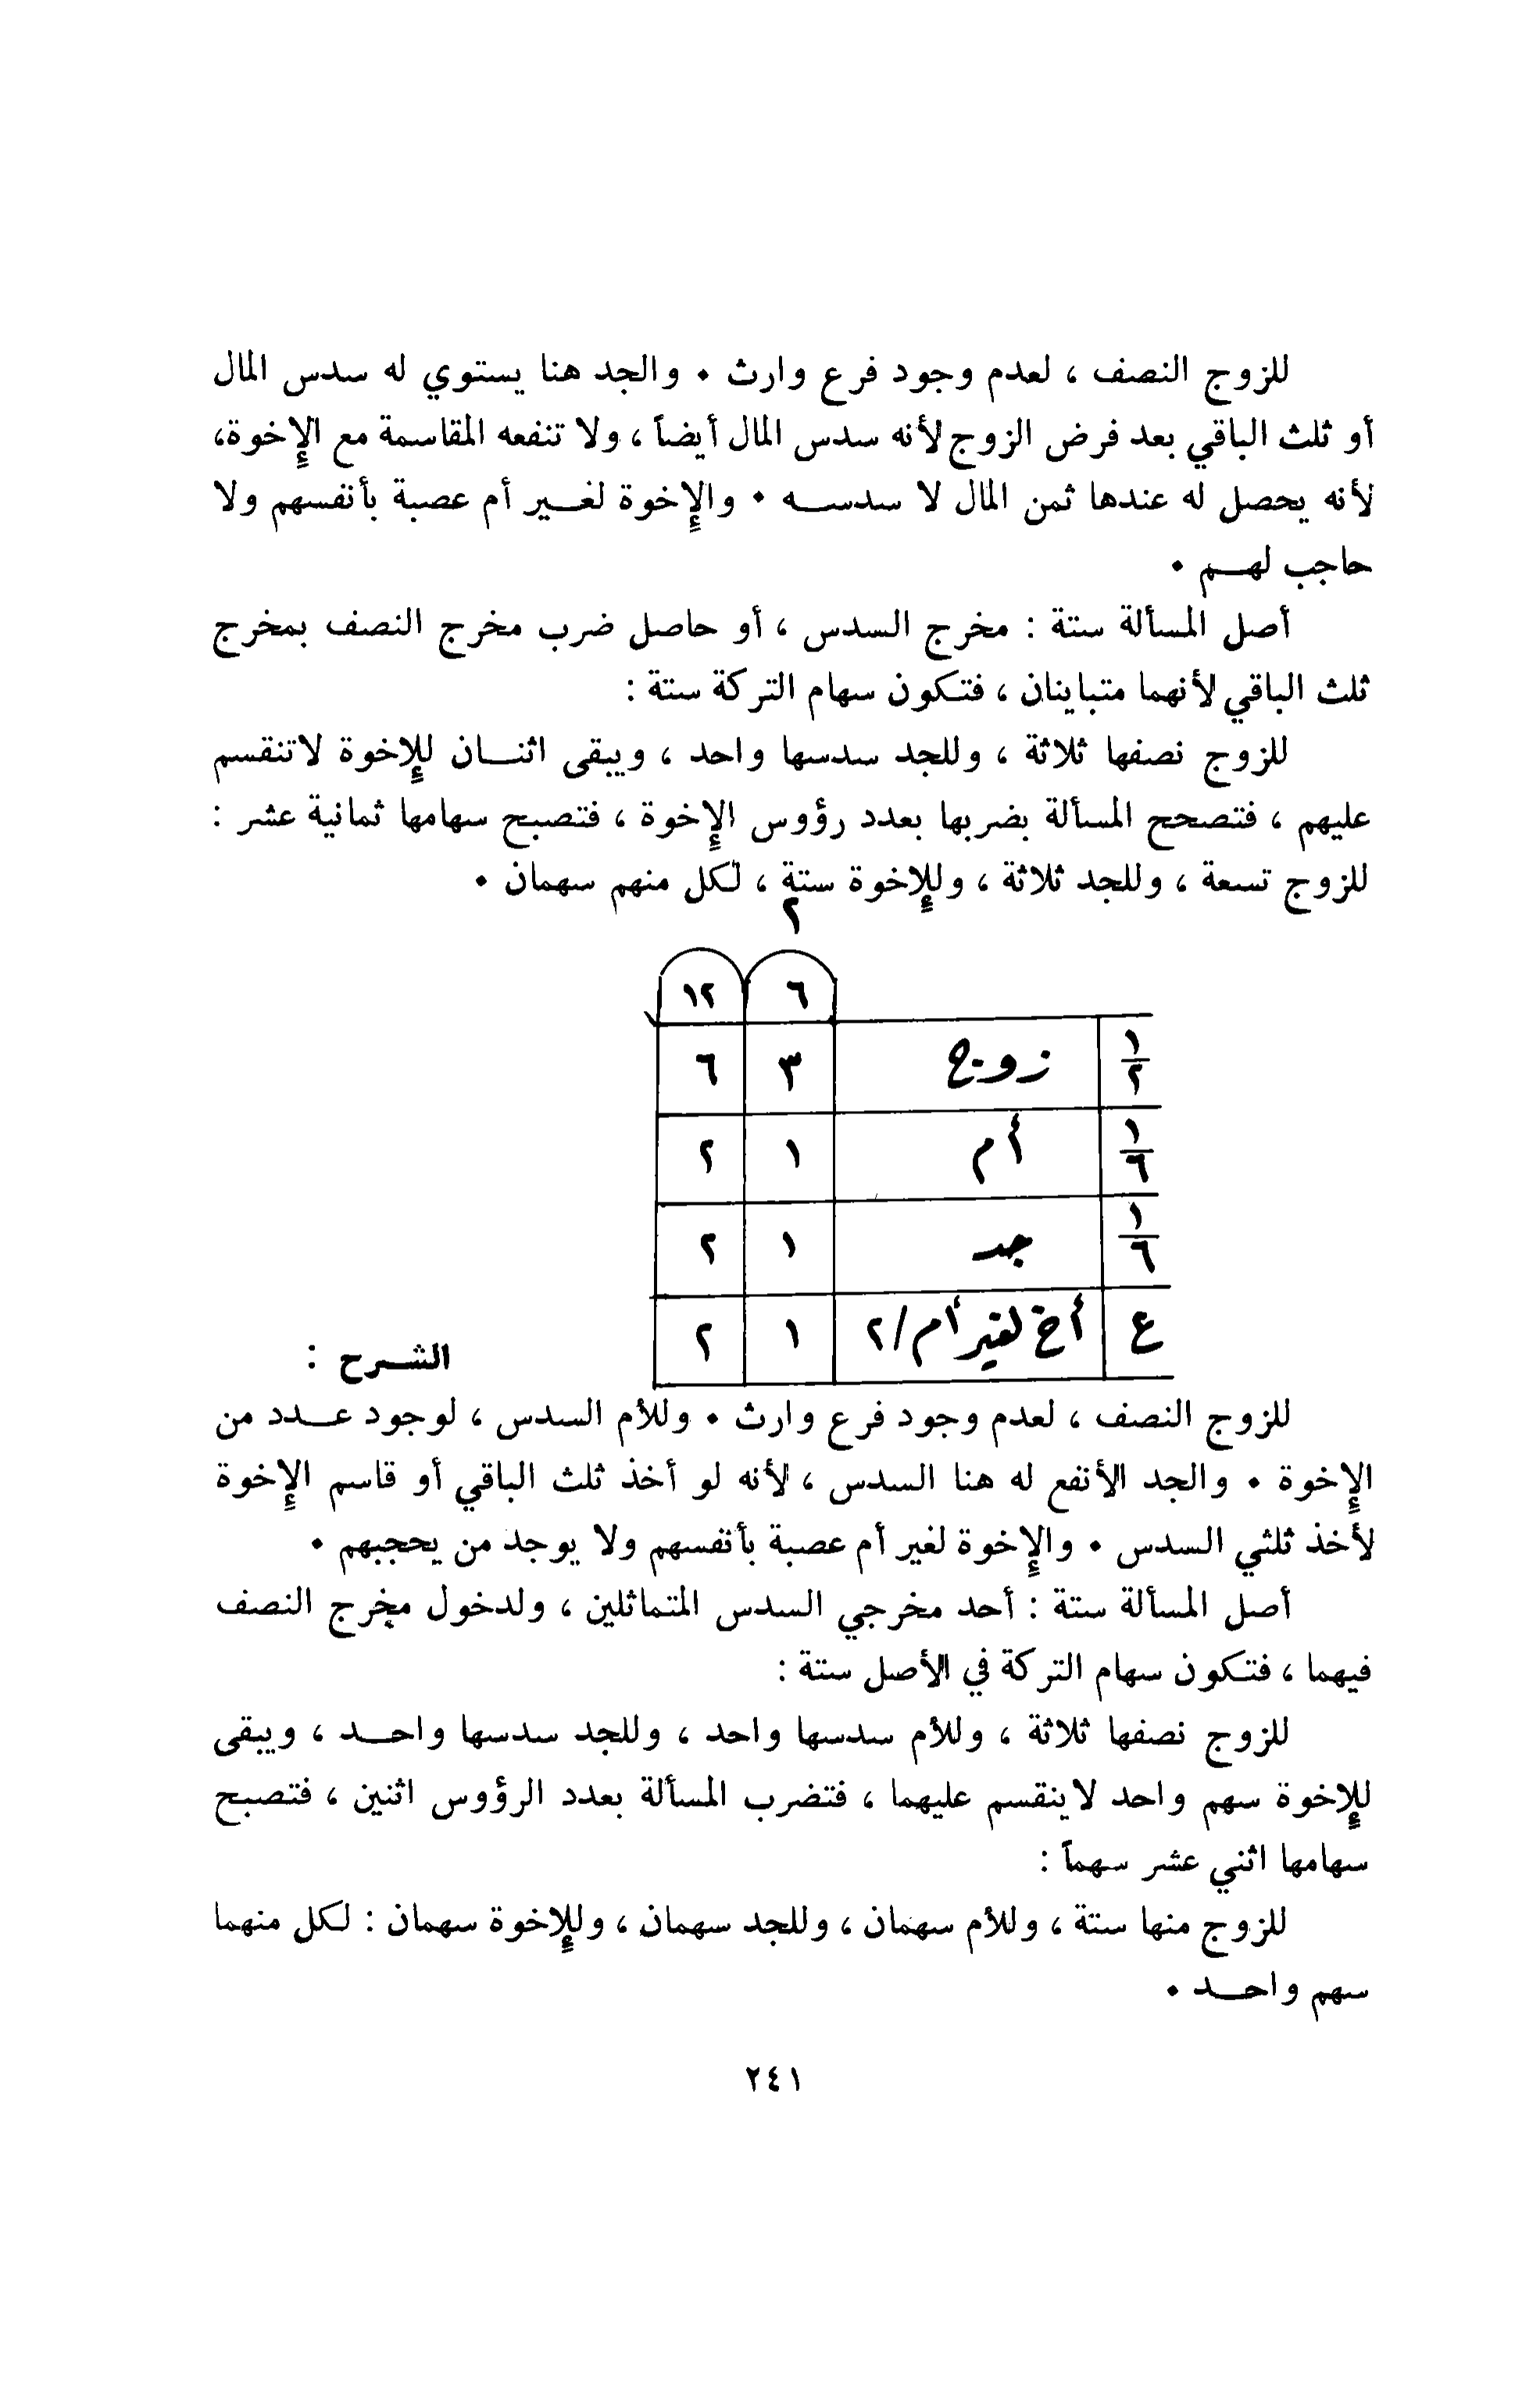 للزوج النصف ، لعدم وجود فرع وارث • والجد هنا يستوي له سدس المال
أو ثلث الباقي بعد فرض الزوج لأنه سدس المال أيضاً ، ولا تنفعه المقاسمة مع الإخوة،
لأنه يحصل له عندها ثمن المال لا سدســه • والإخوة لغــير أم عصبة بأنفسهم ولا
حاجب لهــم •
أصل المسألة ستة : مخرج السدس ، أو حاصل ضرب مخرج النصف بمخرج
ثلث الباقي لأنهما متباينان ، فتكون سهام التركة ستة :
للزوج نصفها ثلاثة ، وللجد سدسها واحد ، ويبقى اثنــان للإخوة لاتنقسم
عليهم ، فتصحح المسألة بضربها بعدد رؤوس الإخوة ، فتصبح سهامها ثمانية عشر :
للزوج تسعة ، وللجد ثلاثة ، وللإخوة ستة ، لكل منهم سهمان •
٢
٦ ١٢
١/٢ زوج ٣ ٦
١/٦ أم ١ ٢
١/٦ جد ١ ٢
ع أخ لغير أم/٢ ١ ٢
الشــرح :
للزوج النصف ، لعدم وجود فرع وارث • وللأم السدس ، لوجود عــدد من
الإخوة • والجد الأنفع له هنا السدس ، لأنه لو أخذ ثلث الباقي أو قاسم الإخوة
لأخذ ثلثي السدس • والإخوة لغير أم عصبة بأنفسهم ولا يوجد من يحجبهم •
أصل المسألة ستة : أحد مخرجي السدس المتماثلين ، ولدخول مخرج النصف
فيهما ، فتكون سهام التركة في الأصل ستة :
للزوج نصفها ثلاثة ، وللأم سدسها واحد ، وللجد سدسها واحــد ، ويبقى
للإخوة سهم واحد لاينقسم عليهما ، فتضرب المسألة بعدد الرؤوس اثنين ، فتصبح
سهامها اثني عشر سهماً :
للزوج منها ستة ، وللأم سهمان ، وللجد سهمان ، وللإخوة سهمان : لكل منهما
سهم واحــد •
٢٤١